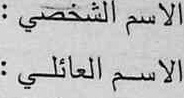 الاسم الشخصي :
الاسم العائلي :